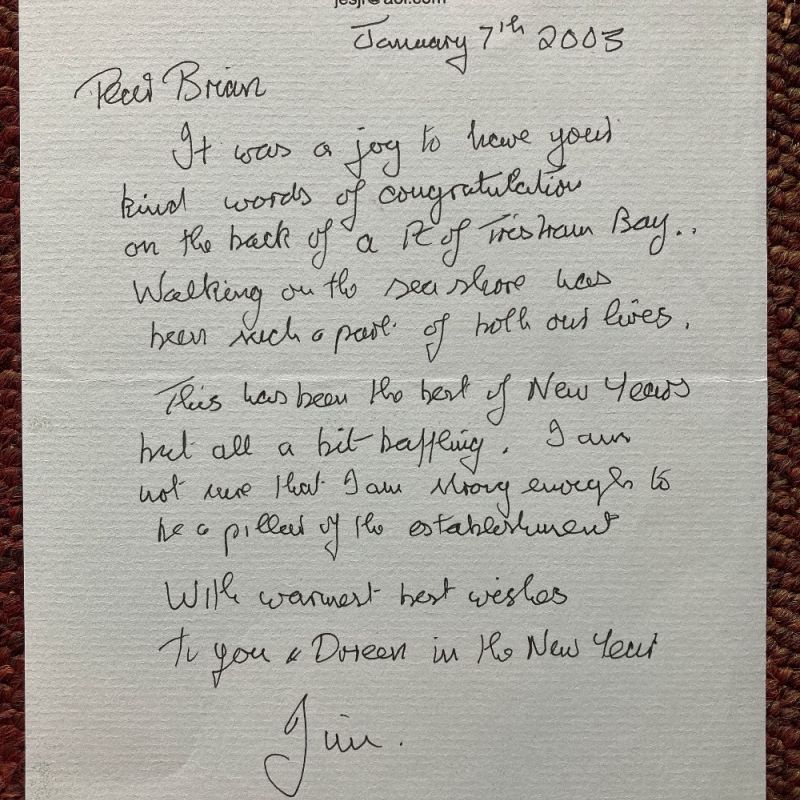 January 7th 2003
Dear Brian
It was a joy to have your
kind words of congratulation
on the back of a Pc of Trestraun Bay..
Walking on the sea shore has
been such a part of both our lives.
This has been the best of New Years
but all a bit baffling. I am
not sure that I am strong enough to
be a pillar of the establishment
With warmest best wishes
to you & Doreen in the New Year
Jim.